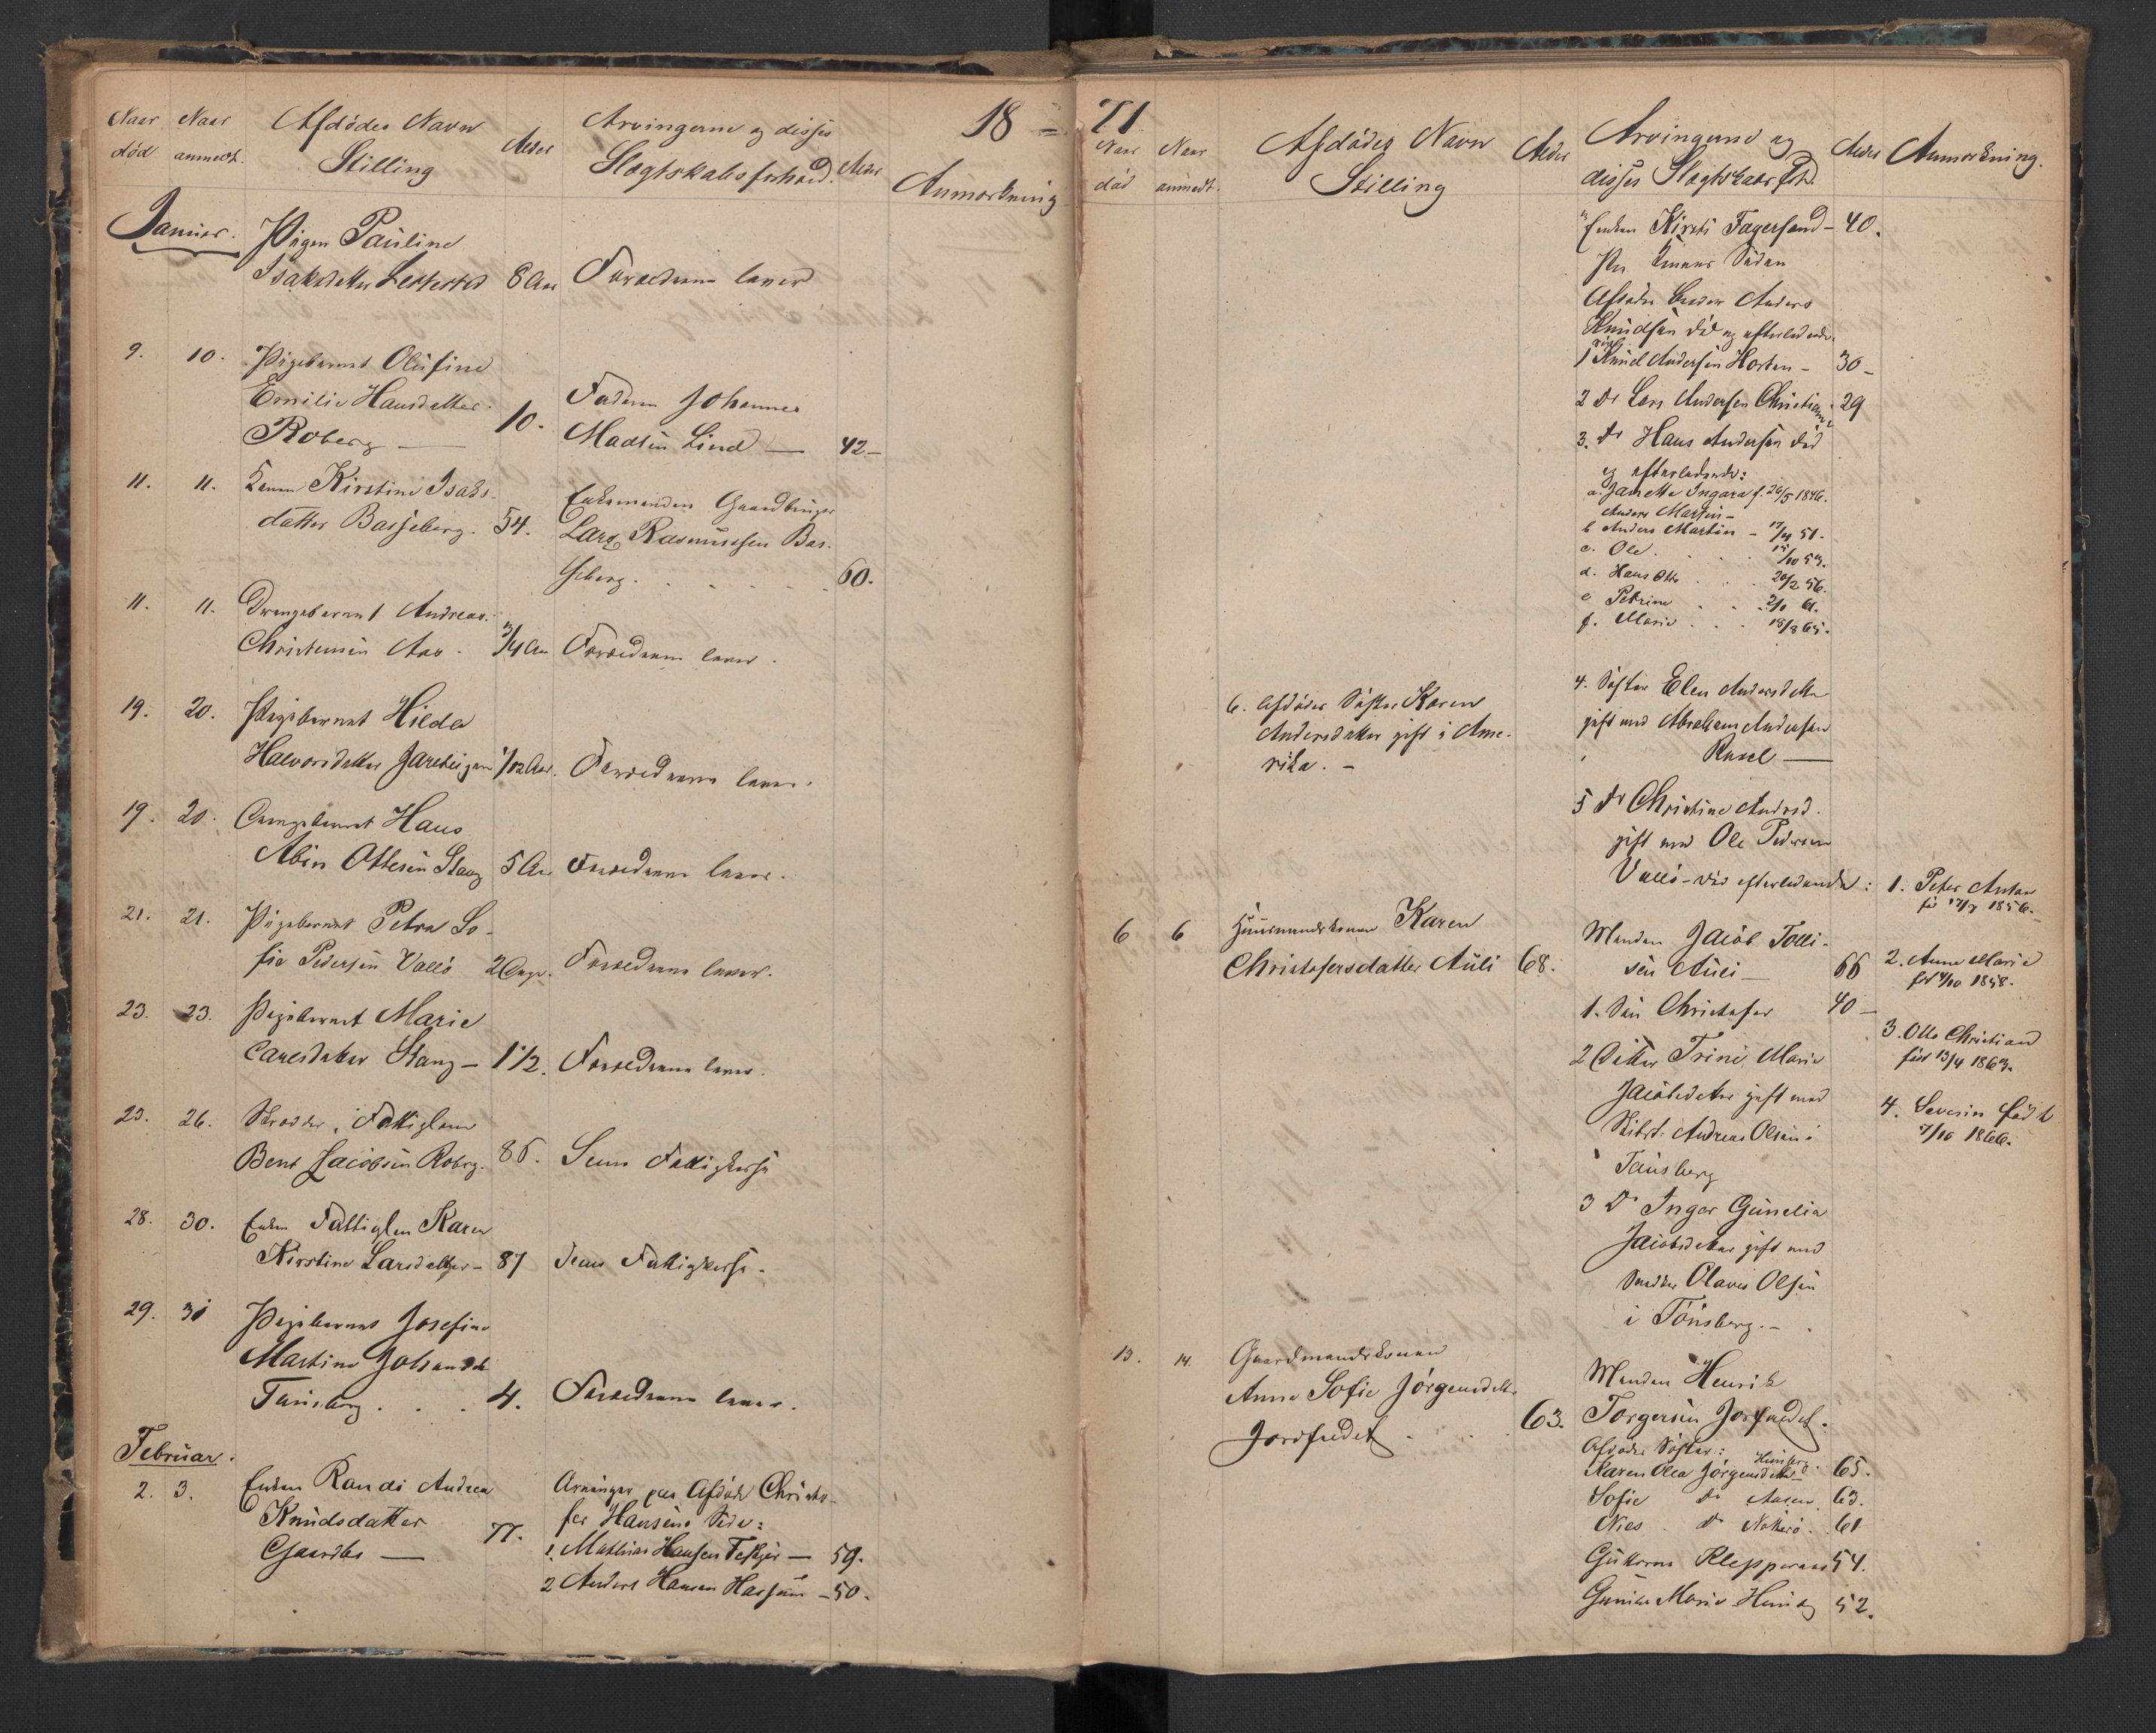 18 =
Naar død
Naar anmeldt.
Afdødes Navn
Stilling
Alder
Arvingerne og disses
Slægtskabsforhold.
Alder
Anmærkning
Januar.
Pigen Pauline
Isaksdatter 8 Aar Forældrene lever
9. 10. Pigebarnet Olufine
Emilie Hansdatter
Roberg — 10.
Faderen Johannes
Madsen Lind — 42 —
11. 11. Konen Kirstine Isaks-
datter Basseberg. 54.
Enkemanden Gaardbruger
Lars Rasmussen Bas-
seberg. 60.
11. 11. Drengebarnet Andreas
Christensen Aas. 3/4 Aar Forældrene lever.
19. 20. Pigebarnet Hilda
Halvorsdatter 1/12 Aar. Forældrene lever.
19. 20. Drengebarnet Hans
Albin Ottesen Stang 5 Aar Forældrene lever.
21. 21. Pigebarnet Petra So-
fie Pedersen Vallø 2 Dage. Forældrene lever.
23. 23. Pigebarnet Marie
Carlsdatter Stang — 1 1/2. Forældrene lever.
25. 26. Fattiglem
Bent Jacobsen Roberg. 86. Sem Fattigkasse
28. 30. Enken Fattiglem Karen
Kirstine Larsdatter — 87 Sems Fattigkasse.
29. 30 Pigebarnet Josefine
Martine Johansdtr
Tønsberg . . . 4. Forældrene lever.
Februar.
2. 3. Enken Randi Andrea
Knudsdatter
77.
Arvinger paa Afdøde Christo-
fer Hansens Side:
1. Mathias Hansen — 59.
2 Anders Hansen — 50.
71
Naar død
Naar anmeldt.
Afdødes Navn
Stilling
Alder
Arvingerne og
disses Slægtskabs Fh.
Alder
Anmærkning.
Enken Kirsti Fagersand — 40.
Paa Konens Siden
Afdødes Broder Anders
Knudsen død og efterladende
1 Knud Andersen Horten — 30 —
2 Do Lars Andersen Christiania 29
3. Do Hans Andersen død
og efterladende:
a. Janette Ingara f. 26/5 1846.
Anders Martin —
b Anders Martin — 17/4 51.
c. Ole . . . 15/10 53.
d. Hans Otto . . 20/2 56.
e Petrine . . 2/1 61.
f. Marie . . . 18/8 65.
6. Afdødes Søster Karen
Andersdatter gift i Ame-
rika. —
4. Søster Elen Andersdatter
gift med Abraham Andersen
5 Do Christine Andersd.
gift med Ole Pedersen
Vallø — død efterladende:
1. Peter Anton
fød 17/7 1856.
2. Anne Marie
fød 4/10 1858.
3. Otto Christian
født 13/4 1863.
4. Severin født
7/10 1866.
6 6 Huusmandskonen Karen
Christofersdatter Auli 68.
Manden Jacob Tolli-
sen Auli — 66
1. Søn Christofer 40 —
2 Datter Trine Marie
Jacobsdatter gift med
Andreas Olsen i
Tønsberg
3 Do Inger Gunelia
Jacobsdatter gift med
Olaves Olsen
i Tønsberg. —
13. 14. Gaardmandskonen
Anne Sofie Jørgensdatter
63.
Manden Henrik
Torgersen
Afdødes Søster:
Karen Olea Jørgensdatter 65.
Sofie Do 63.
Nies . Do Nøtterø . 61
54.
Marie 52.